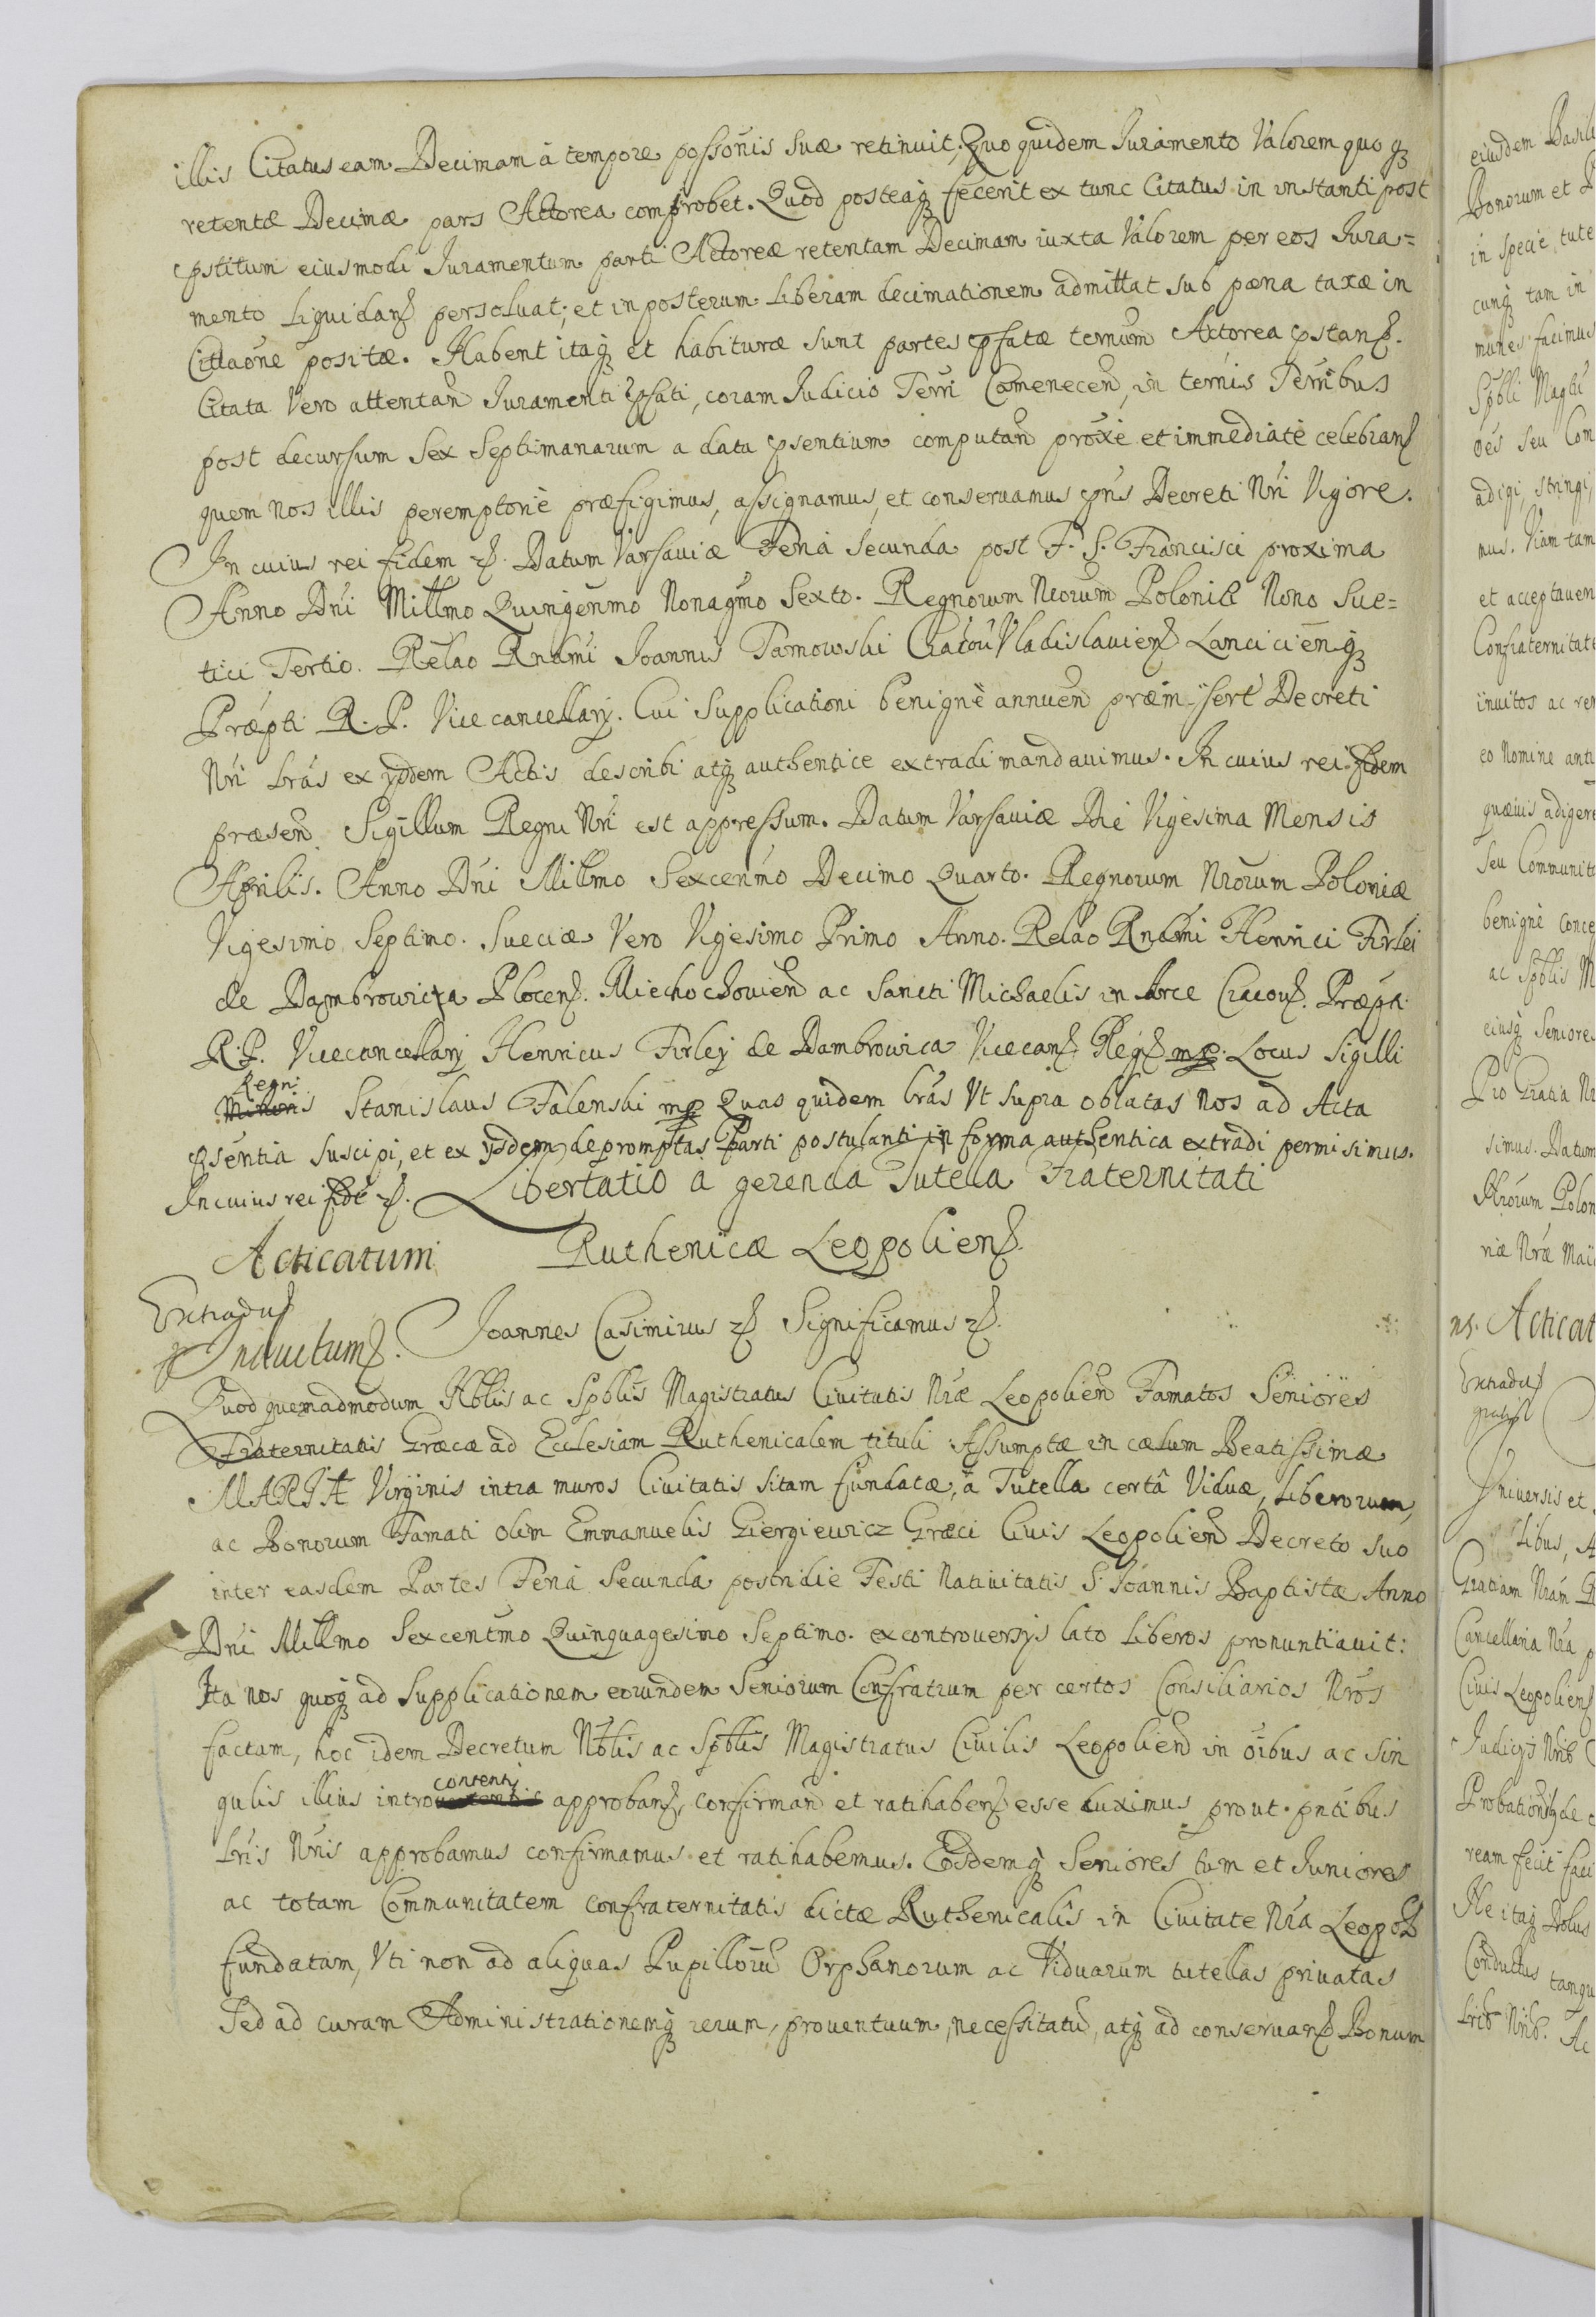 illis Citatus eam Decimam à tempore possõnis suæ retinuit, Quo quidem Iuramento Valorem quoq3
retentæ Decimæ pars Actorea comprobet. Quod posteaq3 fecerit ex tunc Citatus in instanti post
pstitum eiusmodi Iuramentum parti Actoreæ retentam Decimam iuxta Valorem per eos Iura=
mento liquidan persoluat; et in posterum liberam decimationem admittat sub pæna taxæ in
Cittaõne positæ. Habent itaq3 et habituræ sunt partes pfatæ termũm Actorea pstan.
Citata Vero attentan Iuramenti pfati, coram Iudicio Terri Camenecen, in terris Terribus
post decursum sex septimanarum a data psentium computan proxè et immediatè celebran
quem nos illis peremptoriè præfigimus, assignamus, et conseruamus pns Decreti Nri Vigore.
In cuius rei fidem &. Datum Varsauiæ Feria Secunda post F. S. Francisci proxima
Anno Dni Millmo Quingenmo Nonagmo Sexto. Regnorum Nrorum Poloniæ Nono Sue=
tici Tertio. Relao Rndmi Ioannis Tarnowski Cracou Vladislauien Lanciciẽnq3
Præpti R. P. Vicecancellarij. Cui supplicationi benignè annuen præinsert Decreti
Nri lrãs ex ijsdem Actis describi atq3 authentice extradi mandauimus. In cuius rei fidem
præsen. Sigillum Regni Nri est appressum. Datum Varsauiæ Die Vigesima Mensis
Aprilis. Anno Dni Millmo Sexcenmo Decimo Quarto. Regnorum Nrorum Poloniæ
Vigesimo Septimo. Sueciæ Vero Vigesimo Primo Anno. Relao Rndmi Henrici Firlei
de Dambrowicza Plocen. Miechochouien ac Sancti Michaelis in Arce Cracou. Præpti
R. P. Vicecancellarij Henricus Firlej de Dambrowica Vicecan. Reg mp. Locus Sigilli
Regni
Minoris Stanislaus Falenski mp Quas quidem lrãs Vt supra oblatas nos ad Acta
psentia suscipi, et ex ijsdem depromptas Parti postulanti in forma authentica extradi permisimus.
In cuius rei fidẽ &. Libertatio a gerenda Tutella Fraternitati
Acticatum Ruthenicæ Leopolien.
Extradus
Inductum. Ioannes Casimirus & Significamus &.
Quod quemadmodum Nblis ac Spblis Magistratus Ciuitatis Nræ Leopolien Famatos Seniores
Fraternitatis Græcæ ad Ecclesiam Ruthenicalem tituli Assumptæ in cælum Beatissimæ
MARIÆ Virginis intra muros Ciuitatis sitam fundatæ, à Tutella certâ Viduæ, liberorum,
ac Bonorum Famati olim Emmanuelis Giergiewicz Græci Ciuis Leopolien Decreto suo
inter easdem Partes Feria Secunda postridie Festi Natiuitatis S. Ioannis Baptistæ Anno
Dni Millmo Sexcentmo Quinquagesimo Septimo. ex controuersijs lato liberos pronuntiauit:
Ita nos quoq3 ad supplicationem eorundem Seniorum Confratrum per certos Consiliarios Nros
factam, hoc idem Decretum Nblis ac Spblis Magistratus Ciuilis Leopolien in oibus ac sin
contenti
gulis illius intro approban, confirman et ratihaben esse duximus prout pntibus
Lris Nris approbamus confirmamus et ratihabemus. Eosdemq3 Seniores tum et Iuniores
ac totam Communitatem confraternitatis dictæ Ruthenicalis in Ciuitate Nra Leopol
fundatam, Vti non ad aliquas Pupillorũ Orphanorum ac Viduarum tutellas priuatas
Sed ad curam Administrationemq3 rerum, prouentuum, necessitatũ, atq3 ad conseruan Bonum
eiusdem Basili
Bonorum et
in specie tute
cunq3 tam in
munes facimus
Spbli Magtu
oẽs seu Com
adigi, stringi,
mus. Viam tam
et acceptauen
Confraternitate
inuitos ac
eo Nomine anti
quæuis adigere
seu Communita
benignè conce
ac Spblis M
eiusq3 Seniores
Pro Gratia Nr
simus. Datum
Nrorum Polon
riæ Nræ Mai
ns. Acticat
Extradus
Vniuersis et
libus, A
Gratiam Nram R
Cancellaria Nra p
Ciuis Leopolien
Iudicijs Nris
de
ream fecit faci
Ne itaq3 Dolus
Conductus tanqu
Lris Nris. Ac